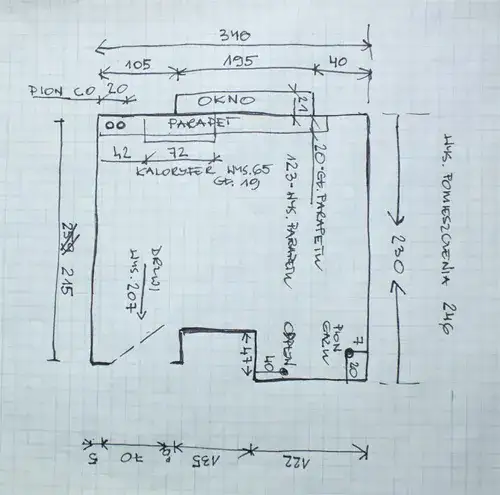 340
105
195
40
PION CO
20
OKNO
21
PARAPET
42
72
KALORYFER WYS.65
GŁ.19
20-GŁ.PARAPETU
123-WYS.PARAPETU
WYS. POMIESZCZENIA 246
230
215
DRZWI
WYS. 207
47
40
PION
GAZU
7
20
5
70
135
122